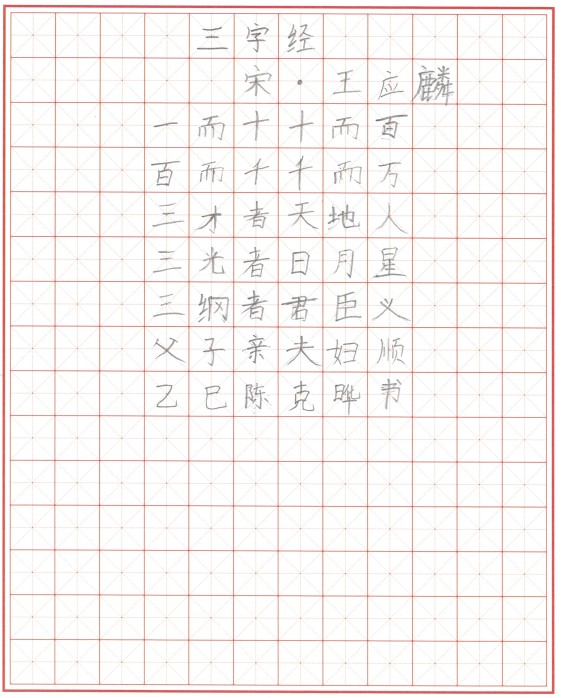 三字经
宋·王应麟
一而十十而百
百而千千而万
三才者天地人
三光者日月星
三纲者君臣义
父子亲夫妇顺
乙巳陈克晔书